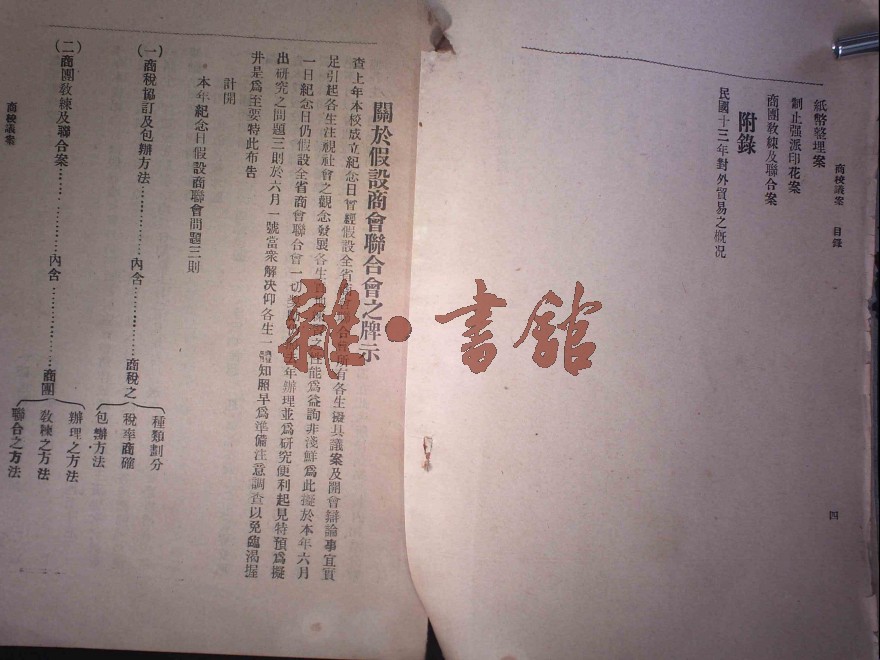 商校議案 目錄
紙幣整理案
制止强派印花案
商團敎練及聯合案
附錄
民國十三年對外貿易之槪况
四
關於假設商會聯合會之牌示
查上年本校成立紀念日曾經假設全省合會所有各生擬具議案及開會辯論事宜實
足引起各生注視社會之觀念發展各生之性能爲益詢非淺鮮爲此擬於本年六月
一日紀念日仍假設全省商會聯合會一切去年辦理並爲研究便利起見特預爲擬
出研究之問題三則於六月一號當衆解决仰各生一體知照早爲準備注意調查以免臨渴握
井是爲至要特此布告
計開
本年紀念日假設商聯會問題三則
(一)商稅協訂及包辦方法……………內含……………商稅之
種類劃分
稅率商確
包辦方法
(二)商團敎練及聯合案……………內含……………商團
辦理之方法
敎練之方法
聯合之方法
商校議案
雜·書館